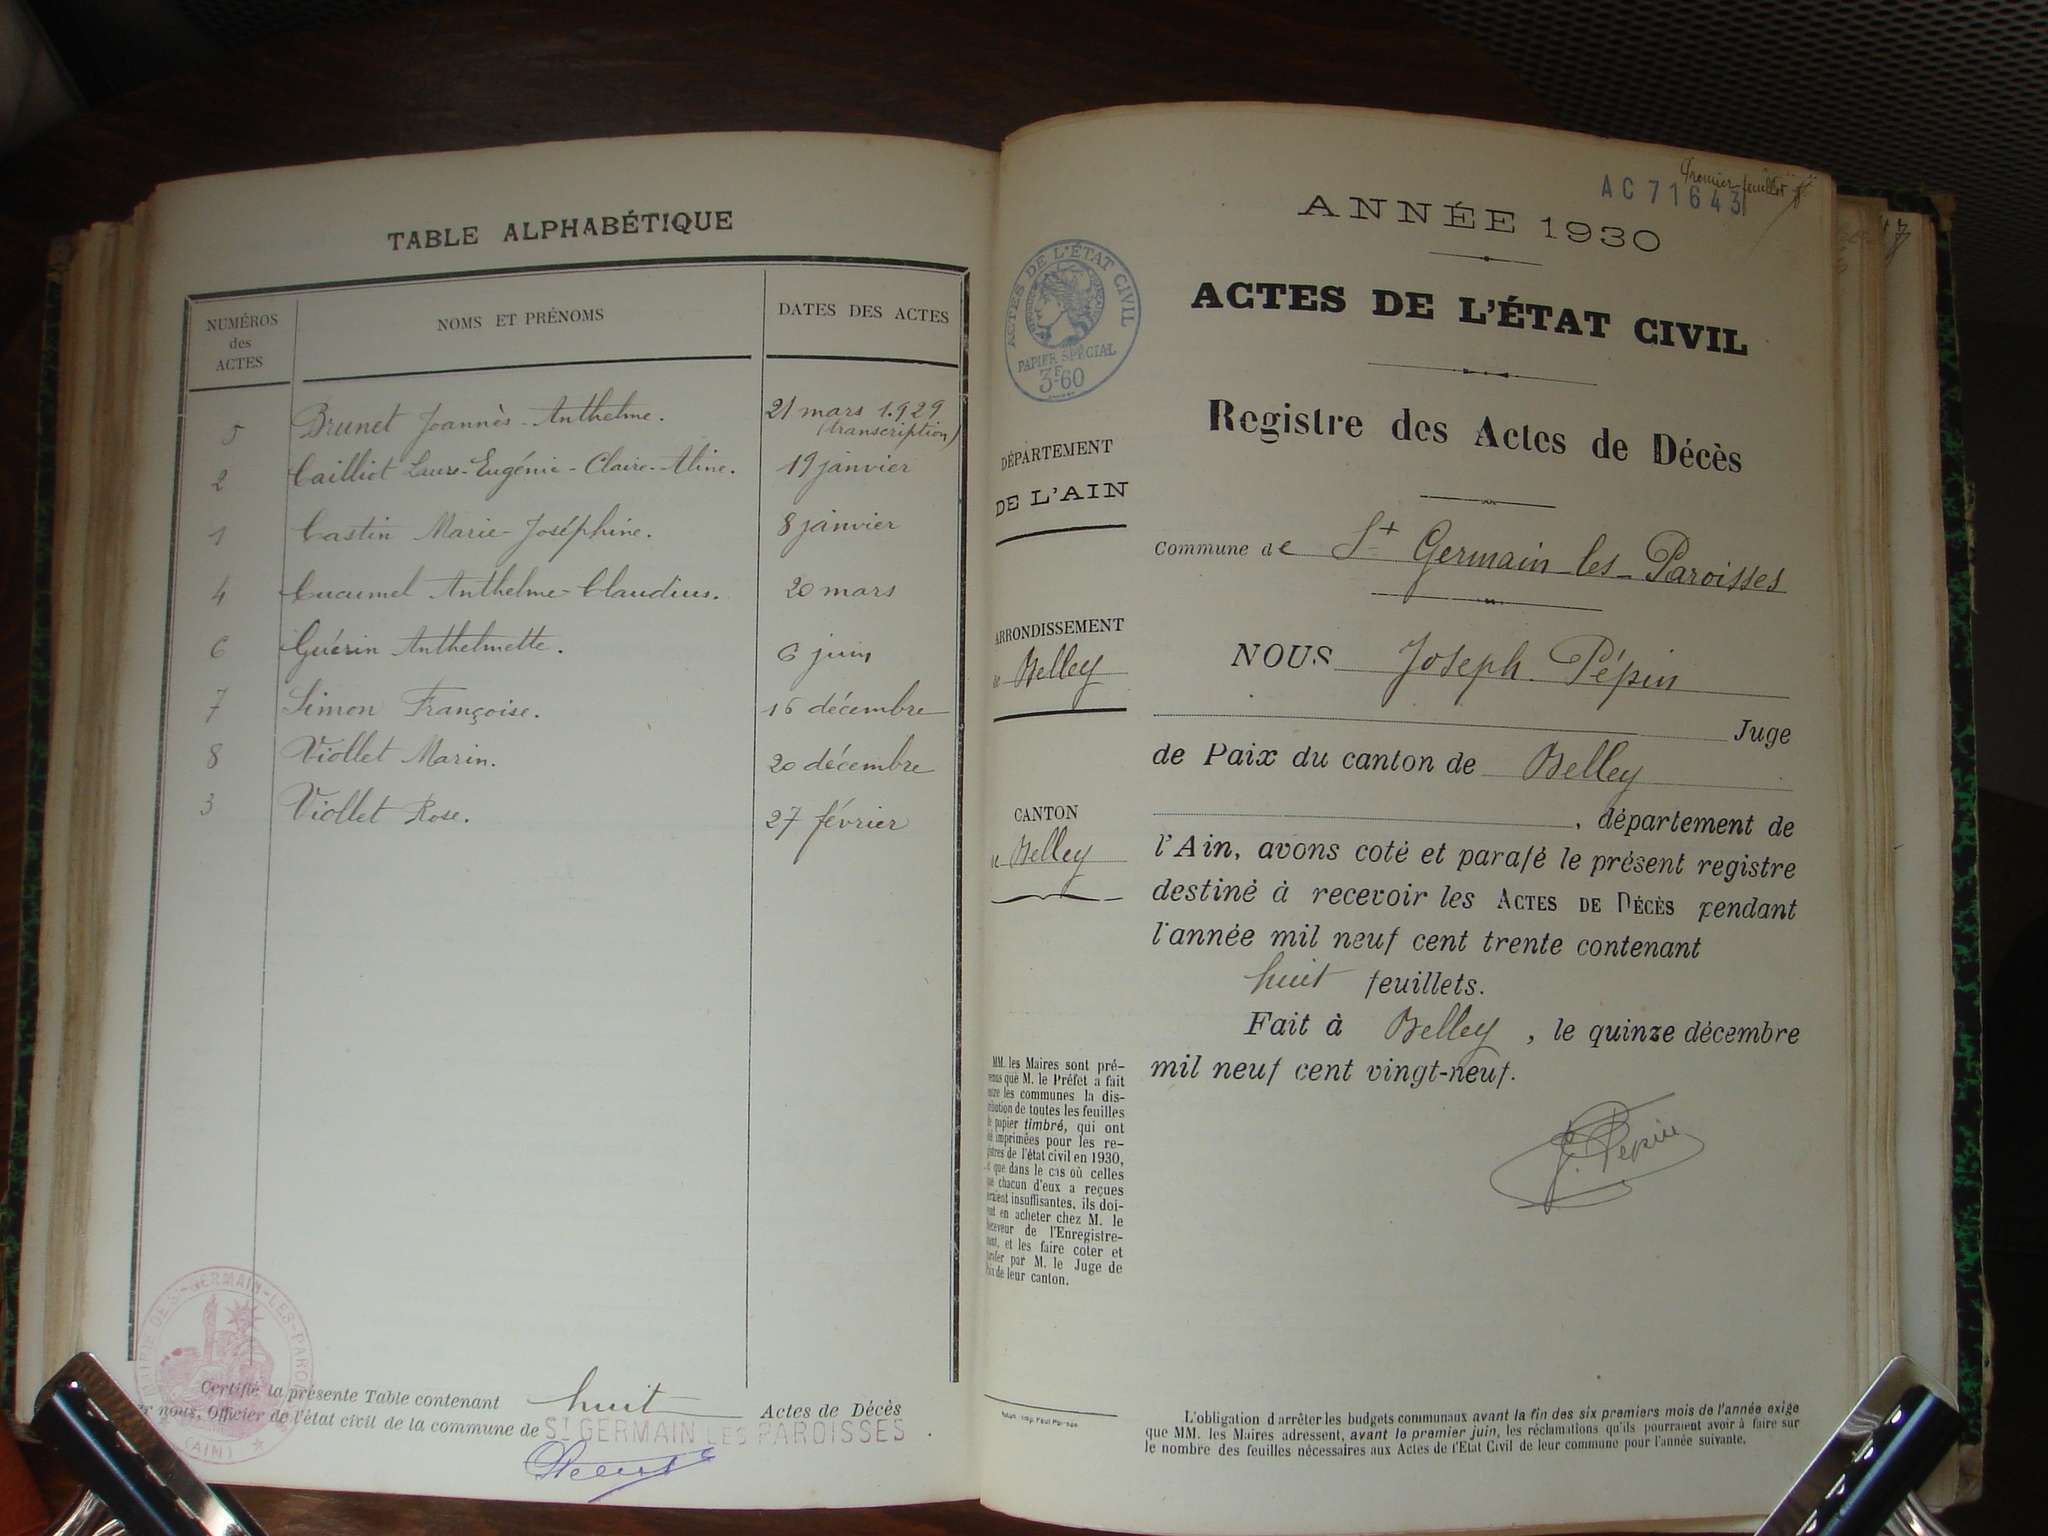 TABLE ALPHABÉTIQUE
NUMÉROS des ACTES
NOMS ET PRÉNOMS
DATES DES ACTES
5 Brunet Joannès-Anthelme. 21 mars 1.929 (transcription)
2 Cailliot Laure-Eugénie-Claire-Aline. 19 janvier
1 Castin Marie-Joséphine. 8 janvier
4 Cucumel Anthelme-Claudius. 20 mars
6 Guérin Anthelmette. 6 juin
7 Simon Françoise. 16 décembre
8 Viollet Marin. 20 décembre
3 Viollet Rose. 27 février
MAIRIE DE ST-GERMAIN-LES-PAROISSES
(AIN)
Certifié la présente Table contenant huit Actes de Décès
nous, Officier de l'état civil de la commune de ST GERMAIN LES PAROISSES
Premier feuillet
AC71643
ANNÉE 1930
ACTES DE L'ÉTAT CIVIL
PAPIER SPÉCIAL
3F60
ACTES DE L'ÉTAT CIVIL
Registre des Actes de Décès
DÉPARTEMENT
DE L'AIN
Commune de St Germain-les-Paroisses
ARRONDISSEMENT
de Belley
NOUS Joseph Pépin
Juge
de Paix du canton de Belley
CANTON
de Belley
, département de
l'Ain, avons coté et parafé le présent registre
destiné à recevoir les ACTES DE DÉCÈS pendant
l'année mil neuf cent trente contenant
huit feuillets.
Fait à Belley, le quinze décembre
mil neuf cent vingt-neuf.
J. Pépin
MM. les Maires sont pré-
venus que M. le Préfet a fait
entre les communes la dis-
tribution de toutes les feuilles
de papier timbré, qui ont
été imprimées pour les re-
gistres de l'état civil en 1930,
et que dans le cas où celles
que chacun d'eux a reçues
seraient insuffisantes, ils doi-
vent en acheter chez M. le
Receveur de l'Enregistre-
ment, et les faire coter et
parafer par M. le Juge de
Paix de leur canton.
L'obligation d'arrêter les budgets communaux avant la fin des six premiers mois de l'année exige
que MM. les Maires adressent, avant le premier juin, les réclamations qu'ils pourraient avoir à faire sur
le nombre des feuilles nécessaires aux Actes de l'Etat Civil de leur commune pour l'année suivante.